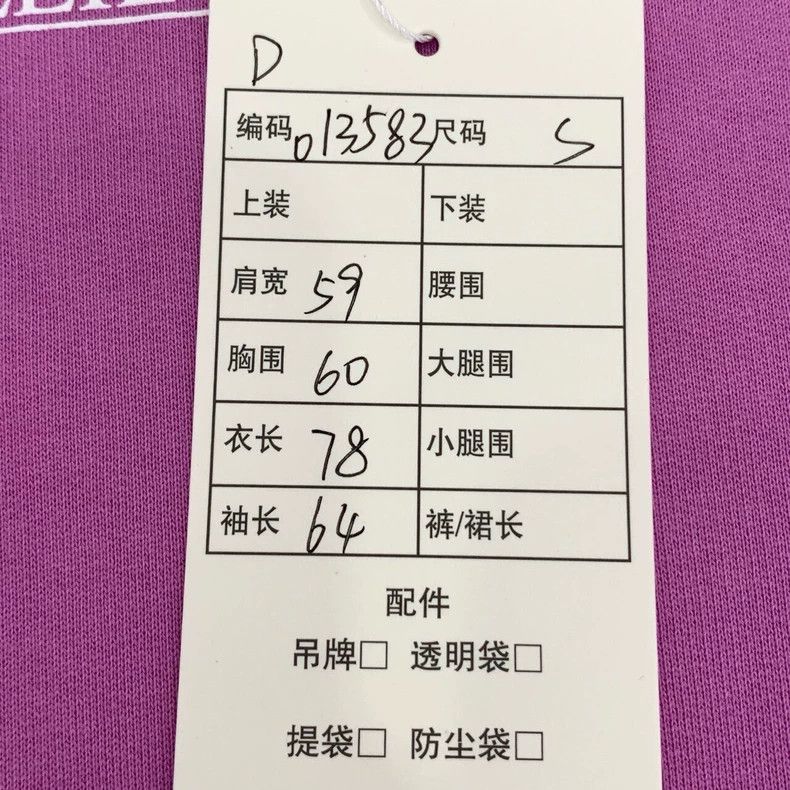 D
编码 013583 尺码 S
上装 下装
肩宽 59 腰围
胸围 60 大腿围
衣长 78 小腿围
袖长 64 裤/裙长
配件
吊牌□ 透明袋□
提袋□ 防尘袋□